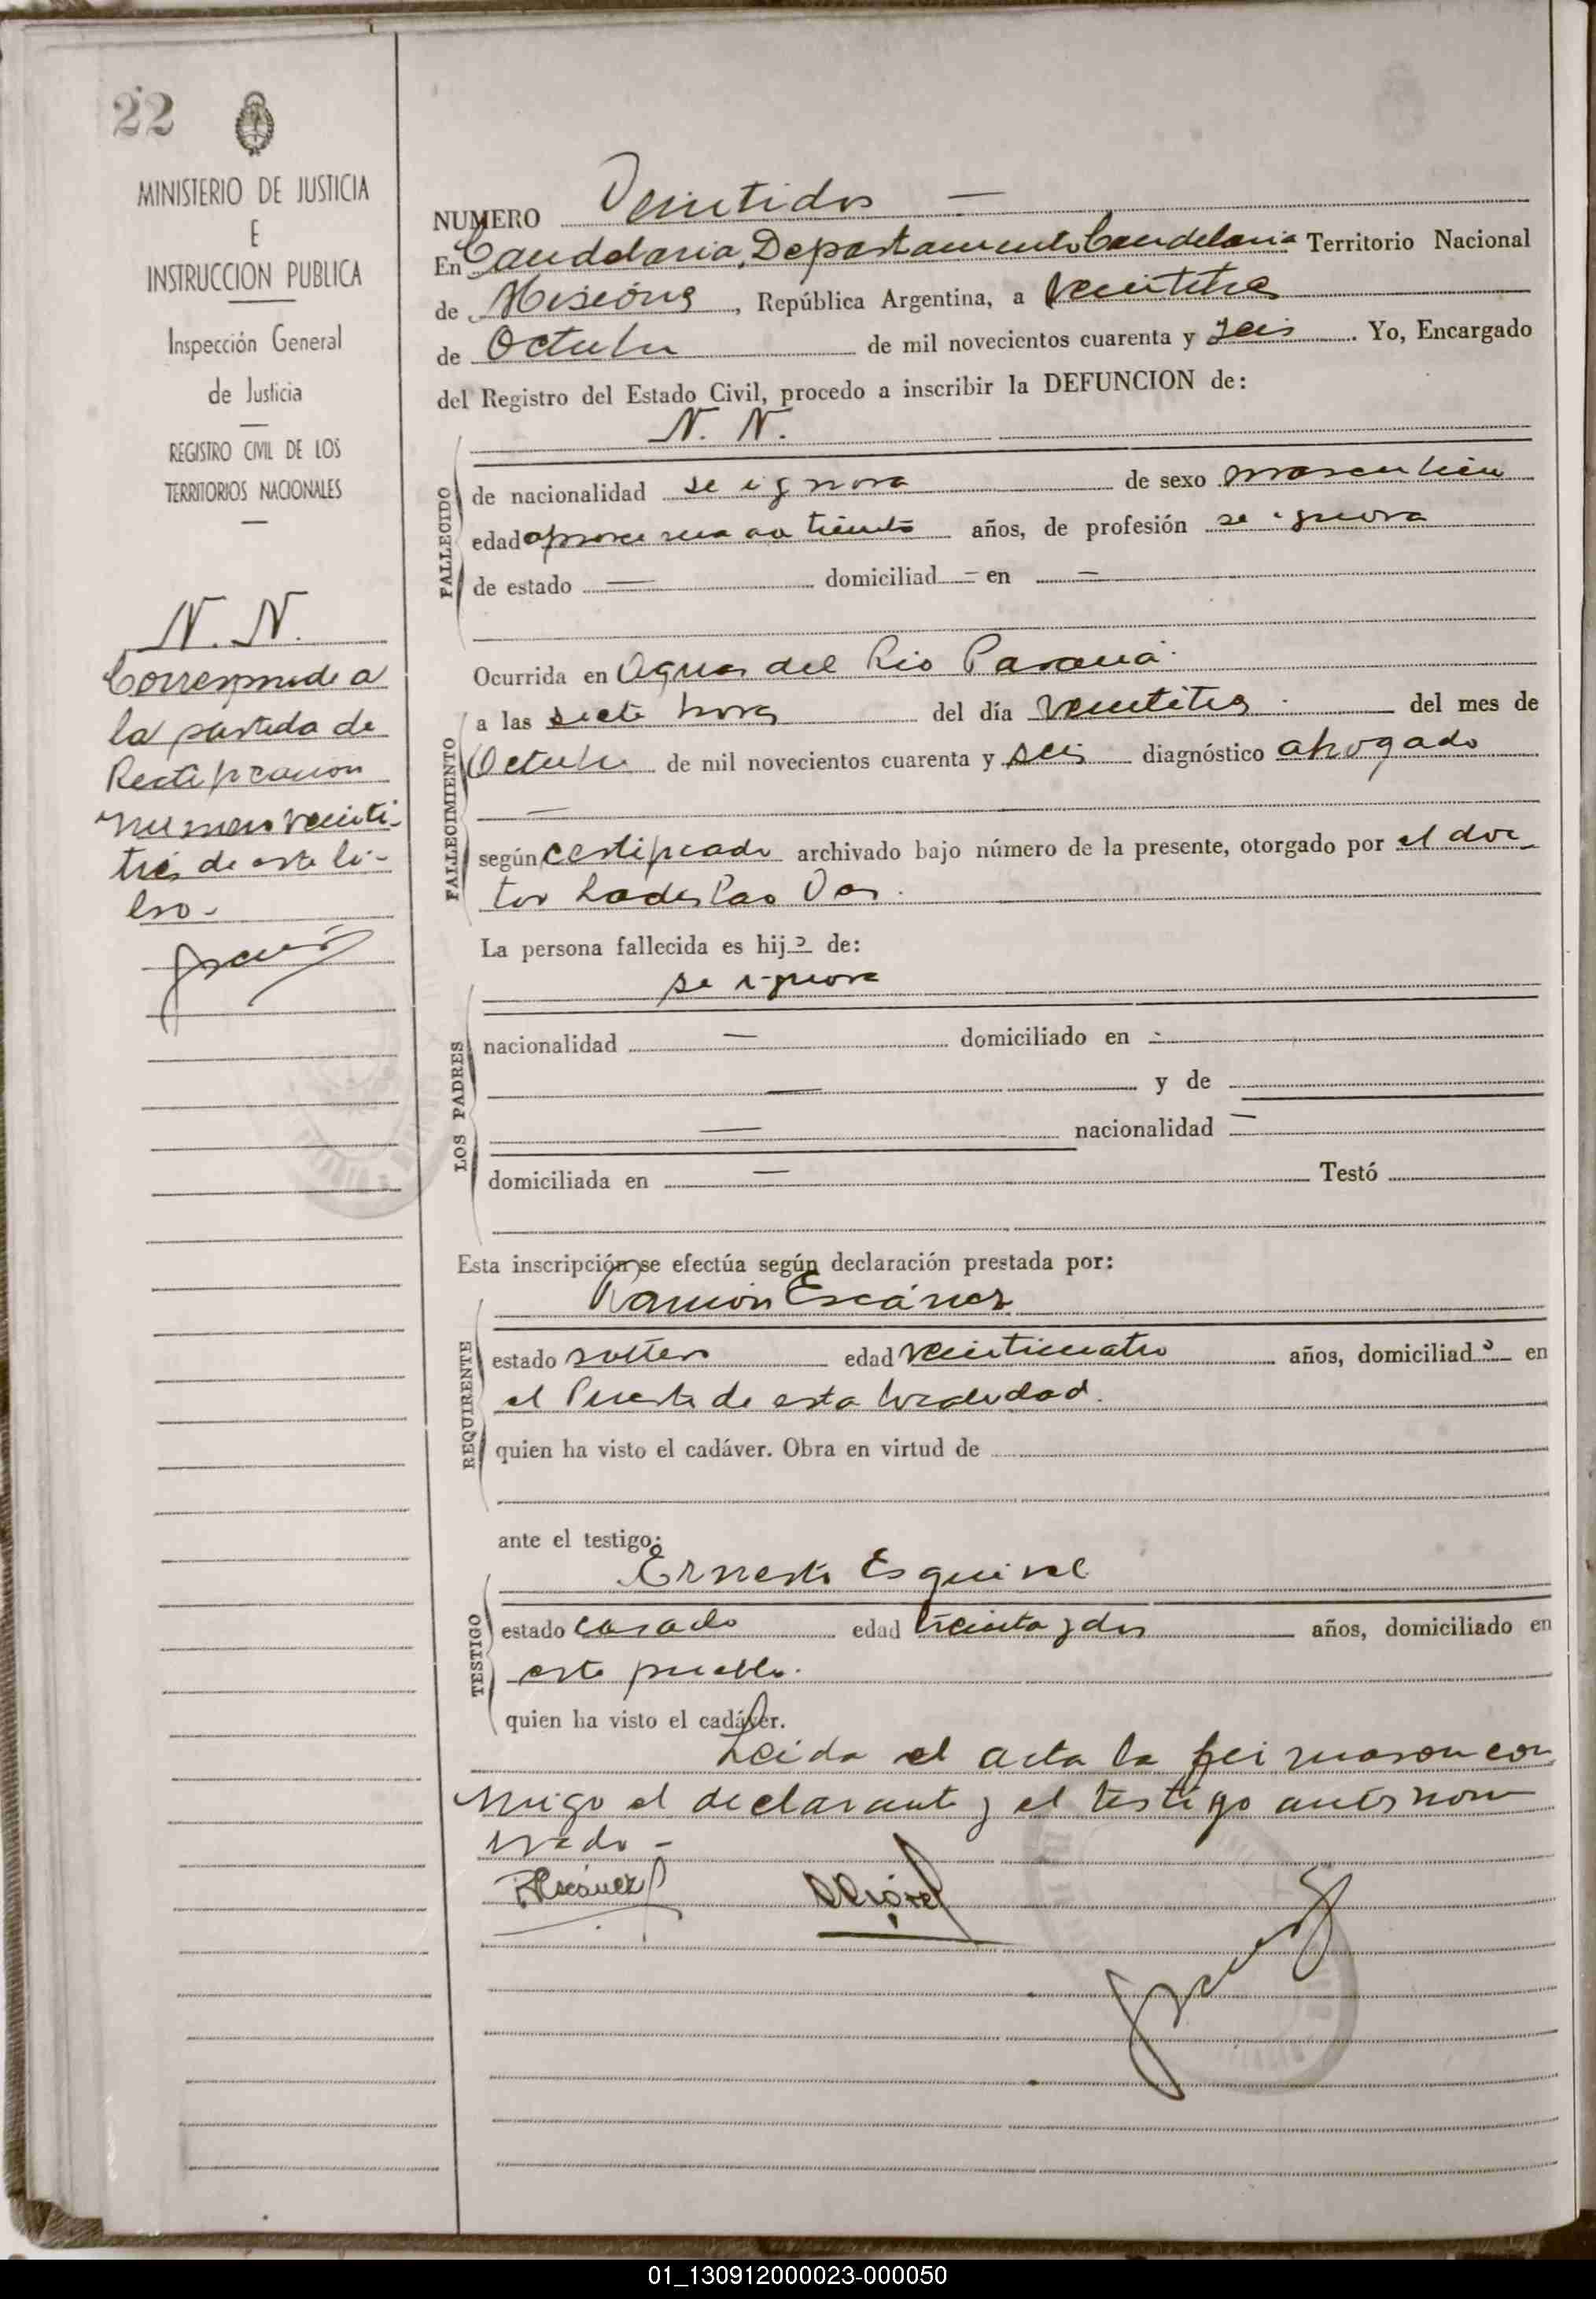 22
MINISTERIO DE JUSTICIA
E
INSTRUCCION PUBLICA
Inspección General
de Justicia
REGISTRO CIVIL DE LOS
TERRITORIOS NACIONALES
N. N.
Corresponde a
la partida de
Rectificacion
numero veinti-
tres de este li-
bro -
NUMERO Veintidos —
En Candelaria, Departamento Candelaria Territorio Nacional
de Misiones, República Argentina, a veintitres
de Octubre de mil novecientos cuarenta y seis. Yo, Encargado
del Registro del Estado Civil, procedo a inscribir la DEFUNCION de:
N. N.
FALLECIDO
de nacionalidad se ignora de sexo masculino
edad treinta años, de profesión se ignora
de estado — domiciliad — en —
Ocurrida en Aguas del Rio Paraná.
FALLECIMIENTO
a las siete horas del día veintitres del mes de
Octubre de mil novecientos cuarenta y seis diagnóstico ahogado
—
según certificado archivado bajo número de la presente, otorgado por el doc-
tor Ladeslao
La persona fallecida es hijo de:
se ignora
LOS PADRES
nacionalidad — domiciliado en -
— y de
— nacionalidad —
domiciliada en — Testó
Esta inscripción se efectúa según declaración prestada por:
Ramón Escánez
REQUIRENTE
estado soltero edad veinticuatro años, domiciliado en
el Puerto de esta localidad.
quien ha visto el cadáver. Obra en virtud de
ante el testigo:
Ernesto Esquivel
TESTIGO
estado casado edad treinta y dos años, domiciliado en
este pueblo.
quien ha visto el cadáver.
Leida el acta la firmaron con
migo el declarante y el testigo antes nom
brado -
REscánez
01_130912000023-000050